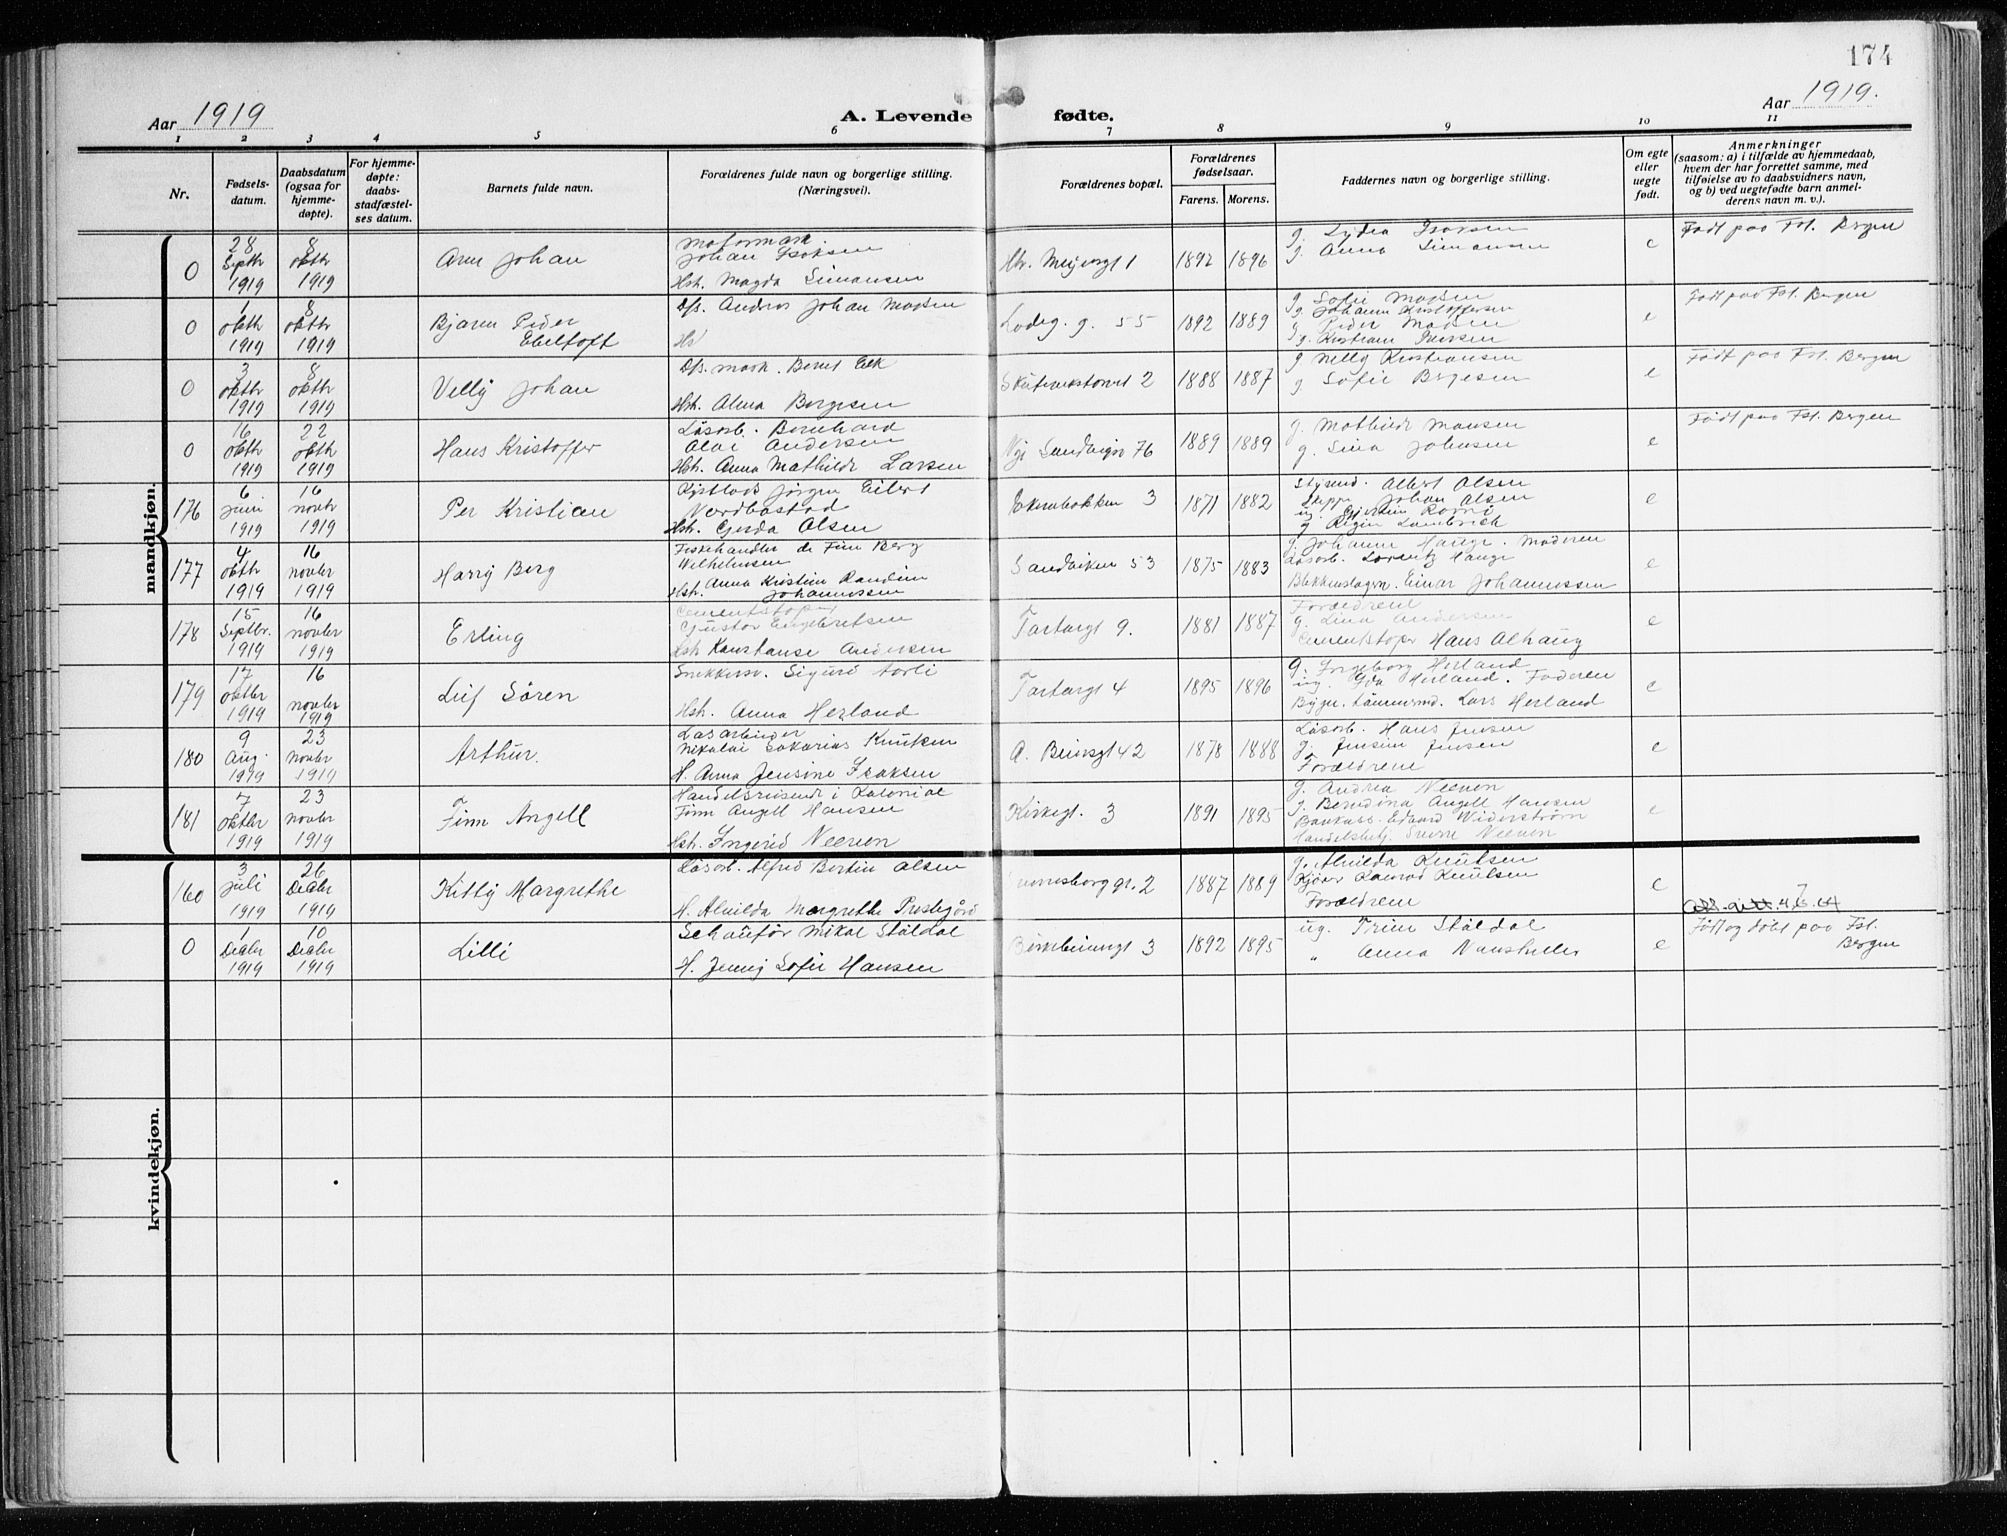 174
Aar 1919
A. Levende fødte.
Aar 1919.
1 2 3 4 5 6 7 8 9 10 11
Nr.
Fødsels-
datum.
Daabsdatum
(ogsaa for
hjemme-
døpte).
For hjemme-
døpte:
daabs-
stadfæstel-
ses datum.
Barnets fulde navn.
Forældrenes fulde navn og borgerlige stilling.
(Næringsvei).
Forældrenes bopæl.
Forældrenes
fødselsaar.
Farens. Morens.
Faddernes navn og borgerlige stilling.
Om egte
eller
uegte
født.
Anmerkninger
(saasom: a) i tilfælde av hjemmedaab,
hvem der har forrettet samme, med
tilføielse av to daabsvidners navn,
og b) ved uegtefødte barn anmel-
derens navn m. v.).
mandkjøn.
0
28
Septbr
1919
8
oktbr
1919
Arne Johan
Johan Isaksen
Hst. Magda Simonsen
1
1892 1896
g. Lydia Isaksen
g. Anna Simonsen
e
Født paa Fst. Bergen
0
1
oktb
1919
8
oktbr
1919
Bjarne Peder
Ebeltoft
Johan
Lodeg. g. 55
1892 1889
g. Sofie
g. Johanne Kristoffersen
g. Peder
g. Kristiane Iversen
e
Født paa Fst. Bergen
0
3
oktbr
1919
8
oktbr
1919
Villy Johan
Berent Eek
Hst. Alma Børgesen
2
1888 1887
g Nelly Kristiansen
g Sofie Børgesen
e
Født paa Fst. Bergen
0
16
oktb
1919
22
oktb
1919
Hans Kristoffer
Løsarb. Bernhard
Olai Andersen
Hst. Anna Mathilde Larsen
Nye Sandvigsv 76
1889 1889
g. Mathilde Monsen
g. Sina Johnsen
e
Født paa Fst. Bergen
176
6
Juni
1919
16
novbr
1919
Per Kristian
Jørgen Eilert
Nordbøstad
Hst. Gjerda Olsen
Ekrebakken 3
1871 1882
Styrmd. Albert Olsen
Skipper Johan Olsen
e
177
4
oktb
1919
16
novbr
1919
Harry Berg
Fiskehandler de Finn Berg
Wilhelmsen
Hst. Anna Kristine Randine
Johannessen
Sandviken 53
1875 1883
g. Johanne Hauge. Moderen
Løsarb. Lorentz Hauge
Blikkenslager. Einar Johannessen
e
178
15
Septbr.
1919
16
novbr
1919
Erling
Cementstøper
Gustav Engebretsen
Hst Konstanse Andersen
Tartargt 9.
1881 1887
Forældrene
g. Lina Andersen
Cementstøper Hans Alhaug
e
179
17
oktbr
1919
16
novbr
1919
Leif Søren
Snekkersv. Sigurd Aarli
Hst. Anna Herland
Tartargt 4
1895 1896
g. Ingeborg Herland
ug. Ida Herland. Faderen
Bygn. tømmermd. Lars Herland
e
180
9
Aug.
1919
23
novbr
1919
Arthur.
Løsarbeider
Nikolai Sakarias Knutsen
H. Anna Jensine Isaksen
A. Beiersgt 42
1878 1888
Løsarb. Hans Jensen
g. Jensine Jensen
Forældrene
e
181
7
oktbr
1919
23
novbr
1919
Finn Angell
Handelsreisende i Kolonial
Finn Angell Hansen
Hst. Ingerid Neeven
Kirkegt. 3
1891 1895
g. Andrea Neeven
g. Berndina Angell Hansen
Bankass. Edvard Widerstrøm
Handelsbetj. Sverre Neeven
e
kvindekjøn.
160
3
juli
1919
26
Decbr
1919
Kitty Margrethe
Løsarb. Alfred Bertin Olsen
H. Alvilda Margrethe Prestegård
2
1887 1889
g. Alvilda Knutsen
Kjører Konrad Knutsen
Forældrene
e
0
1
Decbr
1919
10
Decbr
1919
Lilli
Schauffør Mikal Ståldal
H. Jenny Sofie Hansen
Birkebeinergt 3
1892 1895
ug. Trine Ståldal
" Anna
e
Født og døbt paa Fst.
Bergen